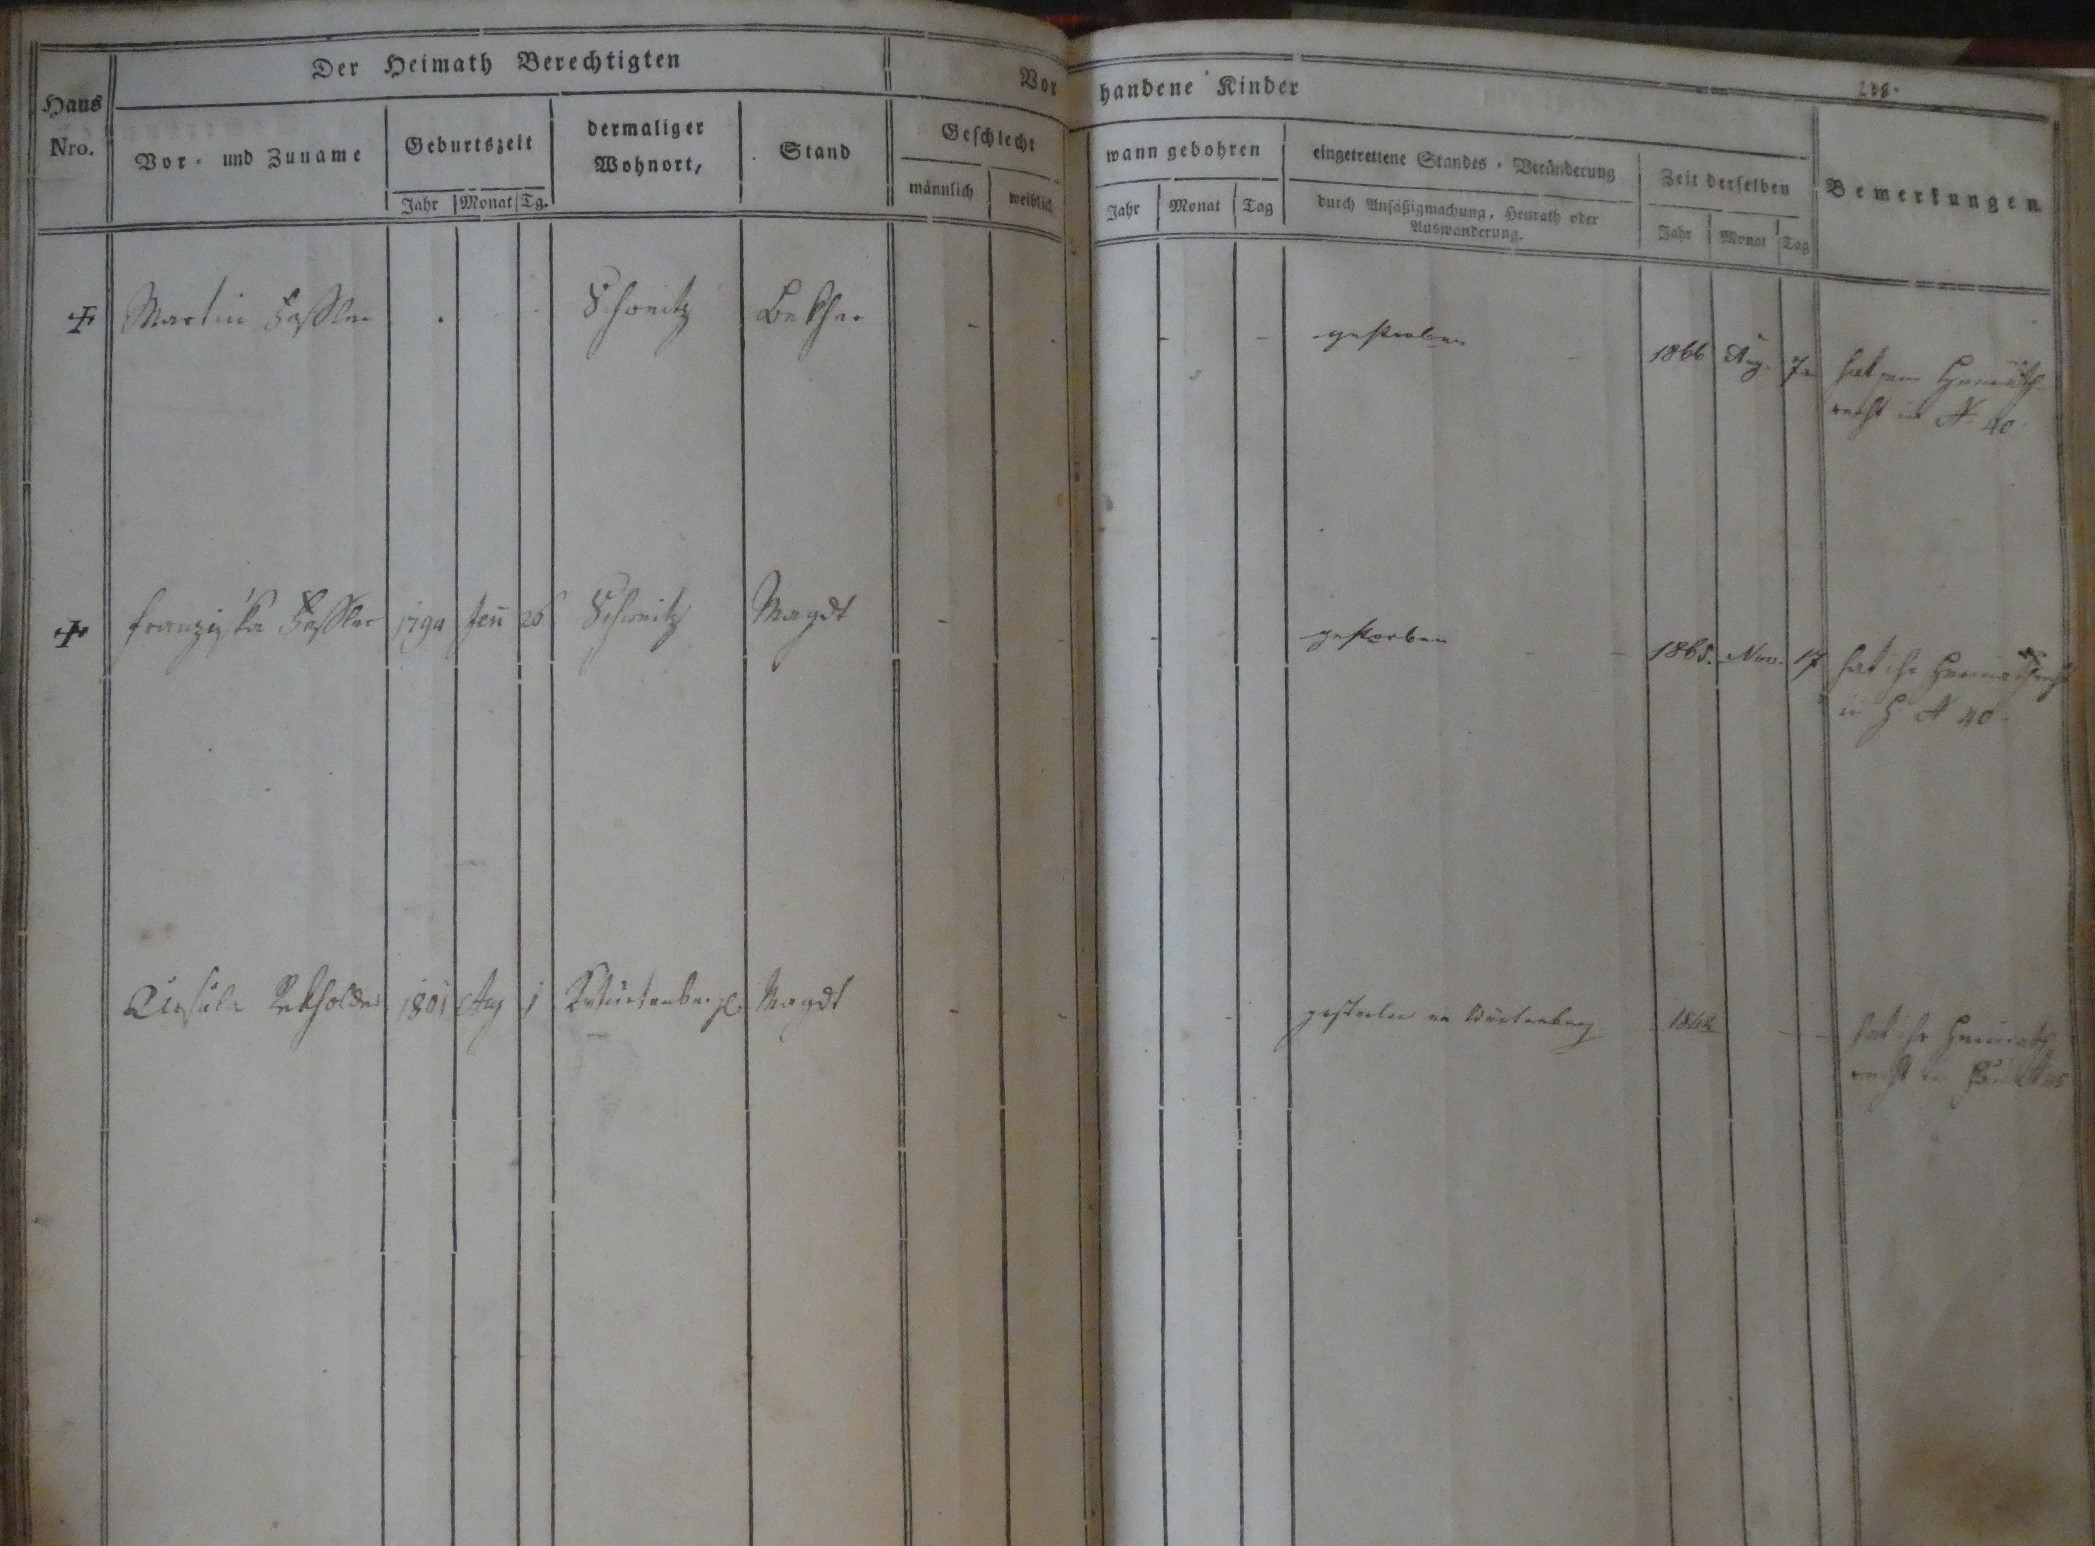 Der Heimath Berechtigten
Vorhandene Kinder
Haus Nro.
Vor- und Zuname
Geburtszeit
Jahr Monat Tg.
dermaliger Wohnort,
Stand
Geschlecht
männlich weiblich
wann gebohren
Jahr Monat Tag
eingetrettene Standes-Veränderung
durch Ansäßigmachung, Heurath oder
Auswanderung.
Zeit derselben
Jahr Monat Tag
Bemerkungen
Martin Fessler Schweitz gestorben 1866 Aug. 7 hat sein Heimath-
recht in N 40.
Franziska Fessler 1794 26 Schweitz Magdt gestorben 1865. Nov. 17 hat ihr Heimathrecht
in H N 40.
Ursula 1801 Aug 1 Magdt gestorben in Würtenberg hat ihr Heimath
recht in